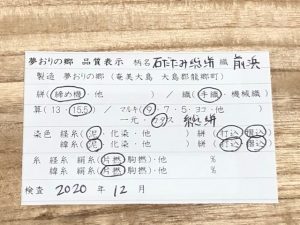 夢おりの郷 品質表示 柄名 石だたみ総絣 織 前浜
製造 夢おりの郷 (奄美大島 大島郡龍郷町)
絣(締め機・他 ) / 織(手織・機械織)
算(13・15.5) / マルキ(9・7・5・ヨコ・他)
一元・カタス 総絣
染色 経糸(泥・化染・他 ) 絣(打込・摺込)
緯糸(泥・化染・他 ) 絣(打込・摺込)
糸 経糸 絹糸(片撚・駒撚)・他 %
緯糸 絹糸(片撚・駒撚)・他 %
検査 2020 年 12 月